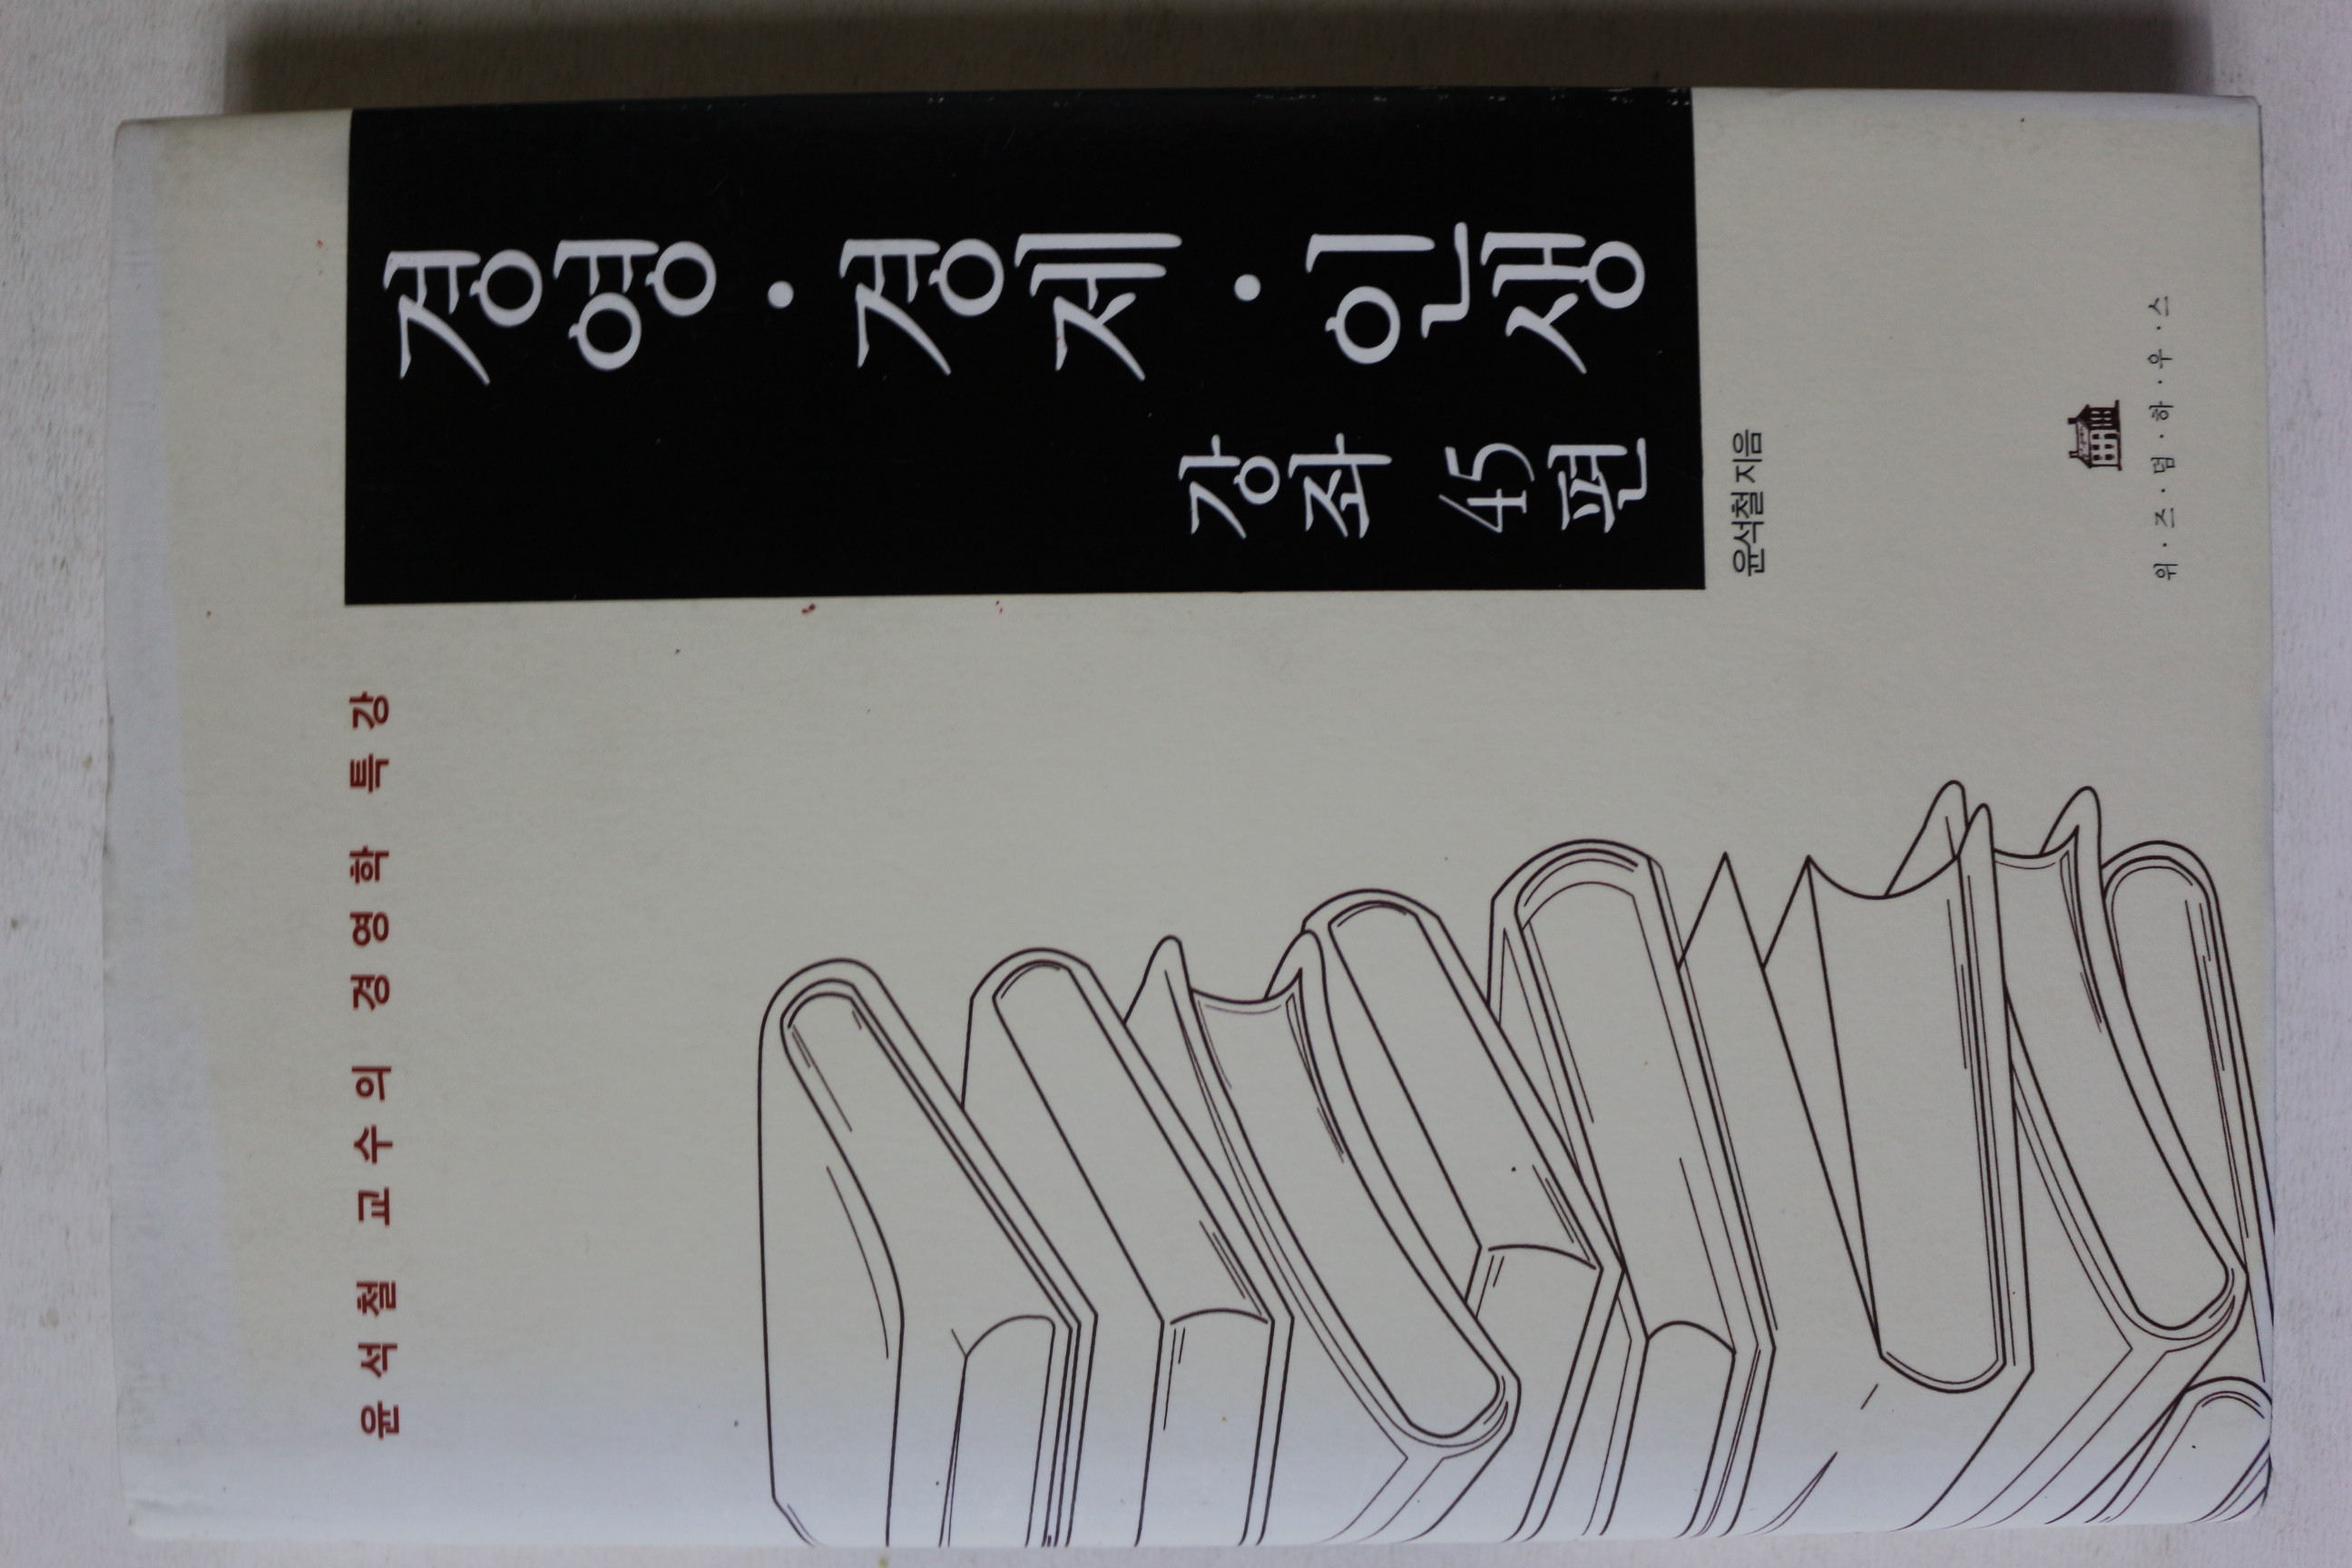 윤석철 교수의 경영학 특강
경영·경제·인생
강좌 45편
윤석철 지음
위·즈·덤·하·우·스